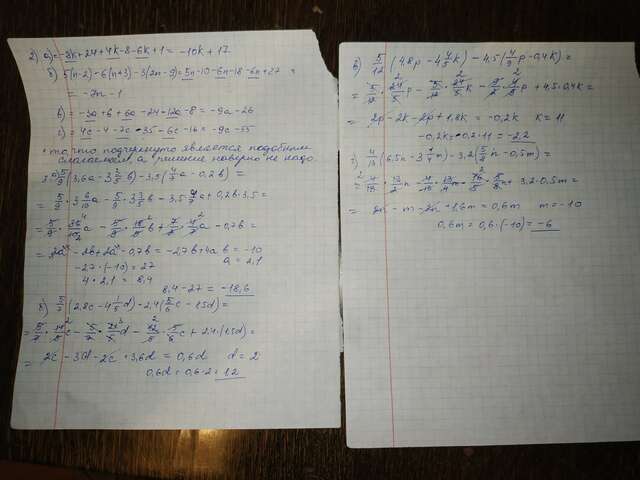 2) а) = -8k+24+4k-8-6k+1 = -10k+17
б) 5(n-2)-6(n+3)-3(2n-9) = 5n-10-6n-18-6n+27 =
= -7n-1
в) = -3a+6+6a-24-12a-8 = -9a-26
г) = 4c-4-7c-35-6c-16 = -9c-55
• то, что подчеркнуто является подобными
слагаемыми, а решение наверно не надо.
3) а) 5/9 (3,6a - 3 3/5 b) - 3,5 (4/7 a - 0,2b) =
= 5/9 · 3 6/10 a - 5/9 · 3 3/5 b - 3,5 · 4/7 a + 0,2b · 3,5 =
= 5/9 · 36/10 a - 5/9 · 18/5 b + 7/2 · 4/7 a - 0,7b =
= 2a - 2b + 2a - 0,7b = -2,7b + 4a b = -10
-2,7 · (-10) = 27 a = 2,1
4 · 2,1 = 8,4
8,4 - 27 = -18,6
б) 5/7 (2,8c - 4 1/5 d) - 2,4 (5/6 c - 1,5d) =
= 5/7 · 14/5 c - 5/7 · 21/5 d - 12/5 · 5/6 c + 2,4 · (1,5d) =
= 2c - 3d - 2c + 3,6d = 0,6d d = 2
0,6d = 0,6 · 2 = 1,2
в) 5/12 (4,8p - 4 4/5 k) - 4,5 (4/9 p - 0,4k) =
= 5/12 · 24/5 p - 5/12 · 24/5 k - 9/2 · 4/9 p + 4,5 · 0,4k =
= 2p - 2k - 2p + 1,8k = -0,2k k = 11
-0,2k = -0,2 · 11 = -2,2
г) 4/13 (6,5n - 3 1/4 m) - 3,2 (5/8 n - 0,5m) =
= 4/13 · 13/2 n - 4/13 · 13/4 m - 16/5 · 5/8 n + 3,2 · 0,5m =
= 2n - m - 2n + 1,6m = 0,6m m = -10
0,6m = 0,6 · (-10) = -6